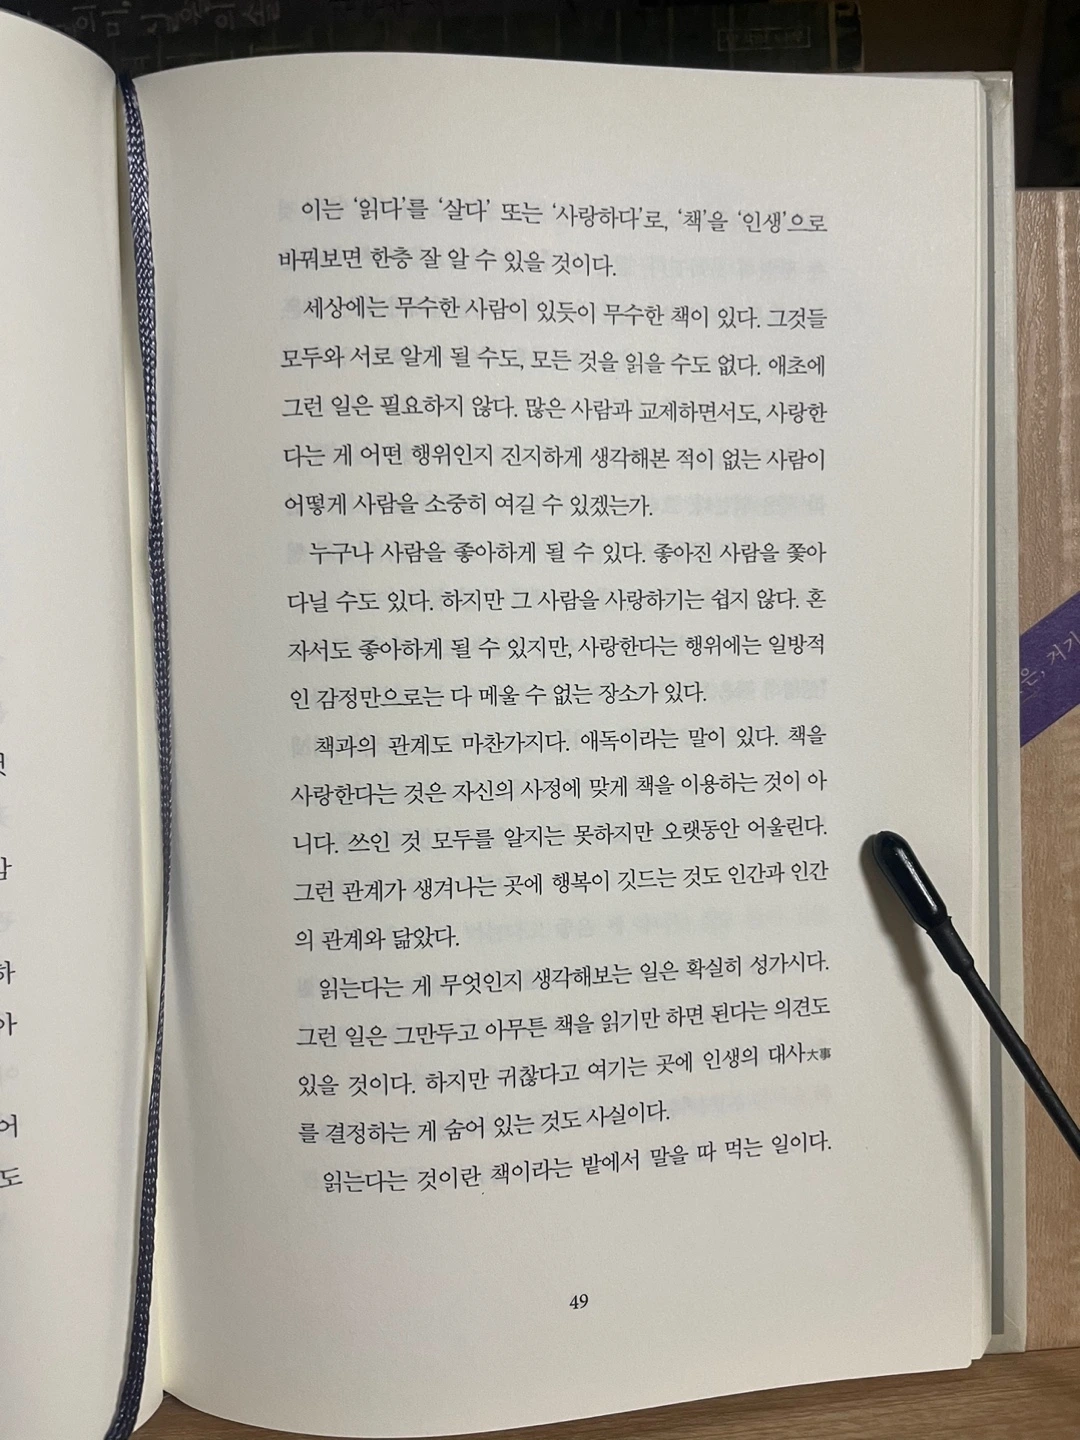 이는 ‘읽다’를 ‘살다’ 또는 ‘사랑하다’로, ‘책’을 ‘인생’으로
바꿔보면 한층 잘 알 수 있을 것이다.
세상에는 무수한 사람이 있듯이 무수한 책이 있다. 그것들
모두와 서로 알게 될 수도, 모든 것을 읽을 수도 없다. 애초에
그런 일은 필요하지 않다. 많은 사람과 교제하면서도, 사랑한
다는 게 어떤 행위인지 진지하게 생각해본 적이 없는 사람이
어떻게 사람을 소중히 여길 수 있겠는가.
누구나 사람을 좋아하게 될 수 있다. 좋아진 사람을 쫓아
다닐 수도 있다. 하지만 그 사람을 사랑하기는 쉽지 않다. 혼
자서도 좋아하게 될 수 있지만, 사랑한다는 행위에는 일방적
인 감정만으로는 다 메울 수 없는 장소가 있다.
책과의 관계도 마찬가지다. 애독이라는 말이 있다. 책을
사랑한다는 것은 자신의 사정에 맞게 책을 이용하는 것이 아
니다. 쓰인 것 모두를 알지는 못하지만 오랫동안 어울린다.
그런 관계가 생겨나는 곳에 행복이 깃드는 것도 인간과 인간
의 관계와 닮았다.
읽는다는 게 무엇인지 생각해보는 일은 확실히 성가시다.
그런 일은 그만두고 아무튼 책을 읽기만 하면 된다는 의견도
있을 것이다. 하지만 귀찮다고 여기는 곳에 인생의 대사大事
를 결정하는 게 숨어 있는 것도 사실이다.
읽는다는 것이란 책이라는 밭에서 말을 따 먹는 일이다.
49
은, 거기
하
아
어
도